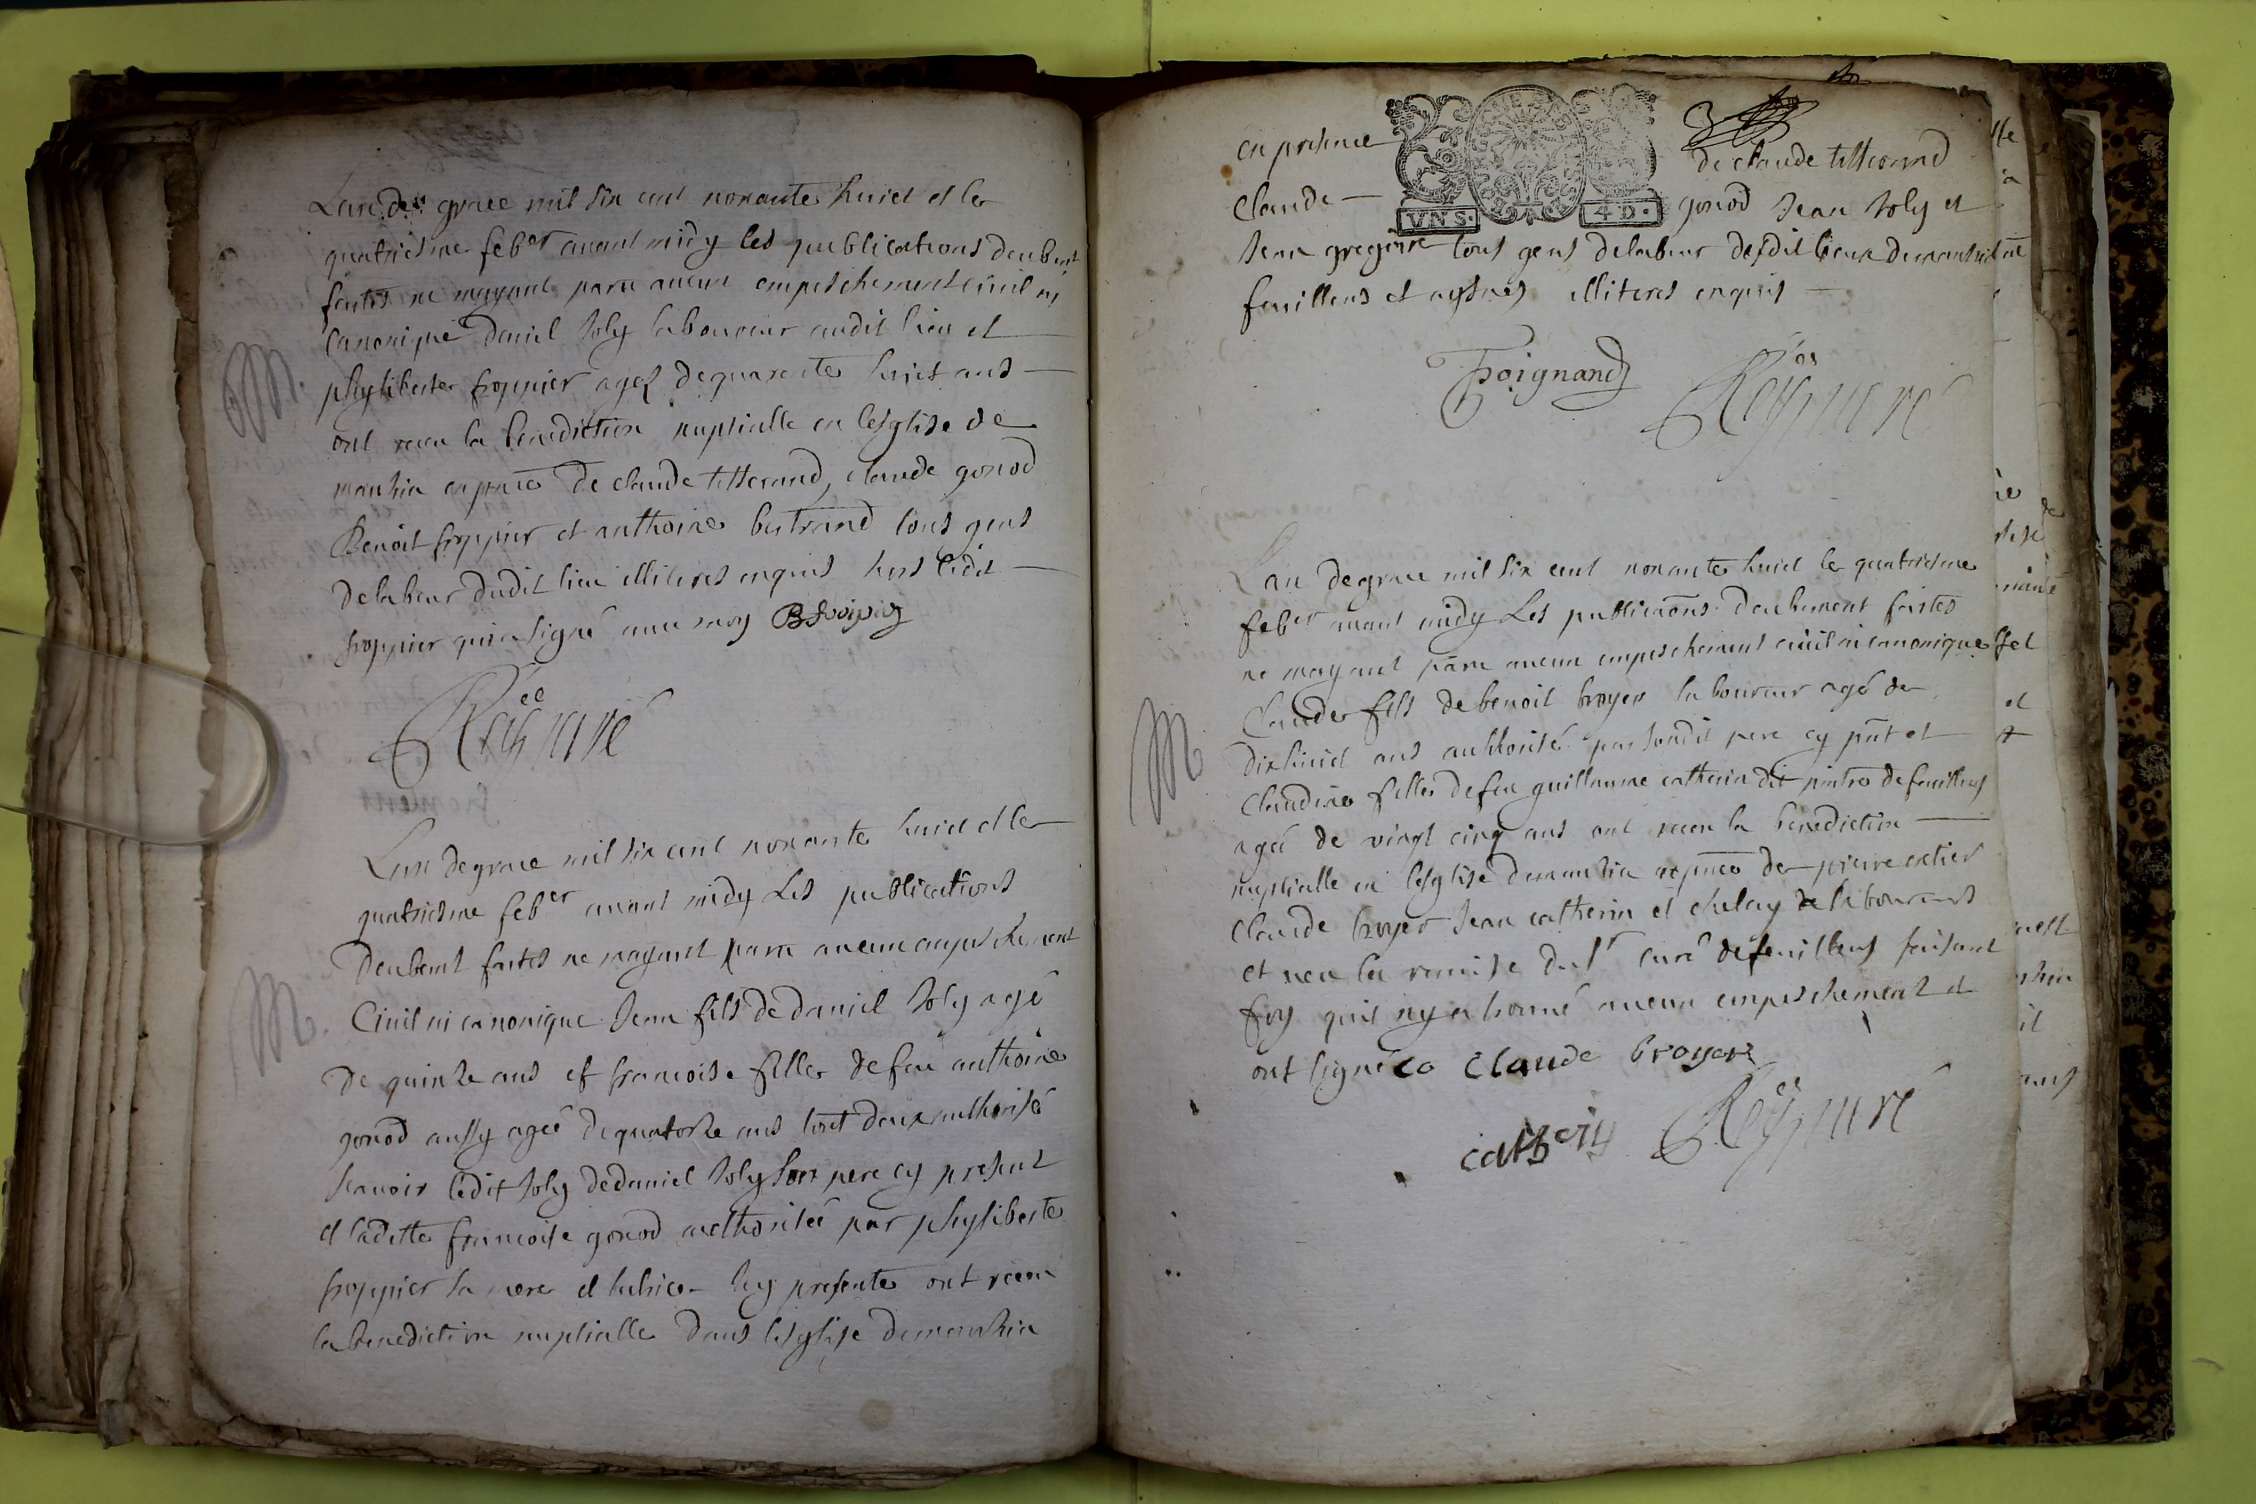 M.
Lan de grace mil six cent nonante huict et le
quatriesme feb^er avant midy les publications deubemt
faites ne mayant paru aucun empeschement civil ni
canonique daniel Joly laboureur audit lieu et
phyliberte froppier agez de quarante huict ans
ont receu la benediction nuptialle en lesglise de
manzia en pnce de claude tisserand, claude gonod
Benoit froppier et anthoine bertrand tous gens
de labeur dudit lieu illiteres enquis hors ledit
froppier qui a signé avec moy B froppier
Rey curé
M.
Lan de grace mil six cent nonante huict et le
quatriesme feb^er avant midy Les publications
deubemt faites ne mayant paru aucun empeschement
Civil ni canonique Jean fils de daniel Joly agé
de quinze ans et francoise fille de feu anthoine
gonod aussy agée de quatorze ans tout deux authorisé
scavoir ledit Joly de daniel Joly son pere cy present
et laditte francoise gonod authorisée par phyliberte
froppier sa mere et tutrice cy presente ont receu
la benediction nuptialle dans lesglise de manzia
en presence de claude tisserand
VNS. 4 D.
Claude gonod Jean Joly et
Jean gregoire tous gens de labeur desdit lieux de manzia et
feuillens et aysnes illiteres enquis
Poignand Rey curé
M
Lan de grace mil six cent nonante huict le quatriesme
feb^er avant midy Les publicaons deubement faites
ne mayant paru aucun empeschement civil ni canonique
Claude fils de benoit broyer laboureur agé de
dixhuict ans authorisé par sondit pere cy pnt et
Claudine fille de feu guillaume catherin dit pintre de feuillens
agée de vingt cinq ans ont receu la benediction
nuptialle en lesglise de manzia en pnce de pierre
Claude broyer Jean catherin et laboureurs
et veu la remise du s^r curé de feuillens faisant
foy quil ny a trouvé aucun empeschement et
ont signé Claude broyer
catherin Rey curé